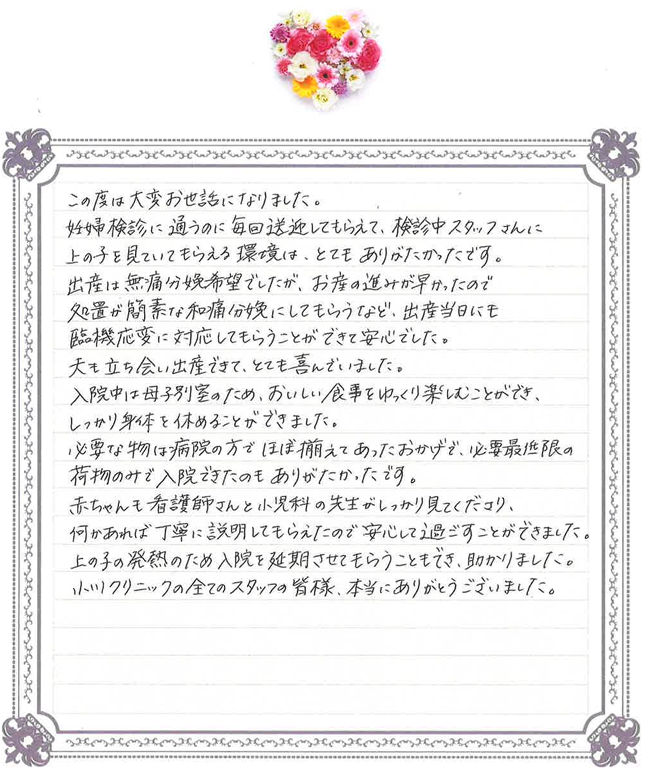 この度は大変お世話になりました。
妊婦検診に通うのに毎回送迎してもらえて、検診中スタッフさんに
上の子を見ていてもらえる環境は、とてもありがたかったです。
出産は無痛分娩希望でしたが、お産の進みが早かったので
処置が簡素な和痛分娩にしてもらうなど、出産当日にも
臨機応変に対応してもらうことができて安心でした。
夫も立ち会い出産できて、とても喜んでいました。
入院中は母子別室のため、おいしい食事をゆっくり楽しむことができ、
しっかり身体を休めることができました。
必要な物は病院の方でほぼ揃えてあったおかげで、必要最低限の
荷物のみで入院できたのもありがたかったです。
赤ちゃんも看護師さんと小児科の先生がしっかり見てくださり、
何かあれば丁寧に説明してもらえたので安心して過ごすことができました。
上の子の発熱のため入院を延期させてもらうこともでき、助かりました。
小川クリニックの全てのスタッフの皆様、本当にありがとうございました。